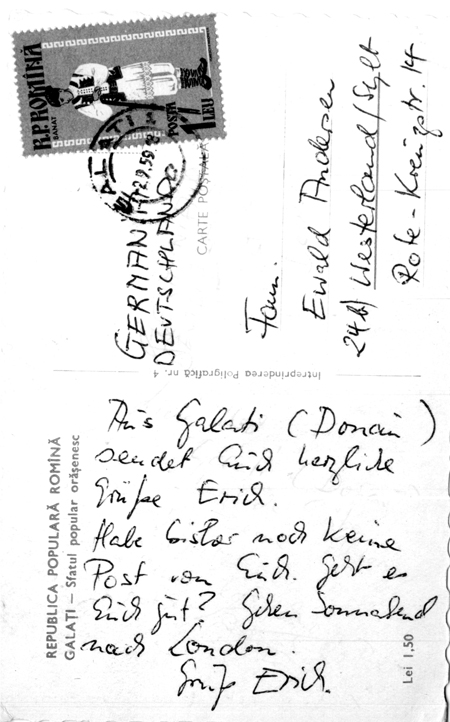 R.P.ROMÎNĂ
BANAT
POSTA
1 LEU
2.9.59
GERMANIA
DEUTSCHLAND
CARTE POSTALĂ
Fam.
Ewald Andersen
Westerland/Sylt
Rote-Kreuzstr. 14
Intreprinderea Poligrafică nr. 4
REPUBLICA POPULARĂ ROMÎNĂ
GALAȚI — Sfatul popular orășenesc
Lei 1,50
Aus Galati (Donau)
sendet Euch herzliche
Grüße Erich.
Habe bisher noch keine
Post von Euch. Geht es
Euch gut? Gehen Sonnabend
nach London.
Gruß Erich.